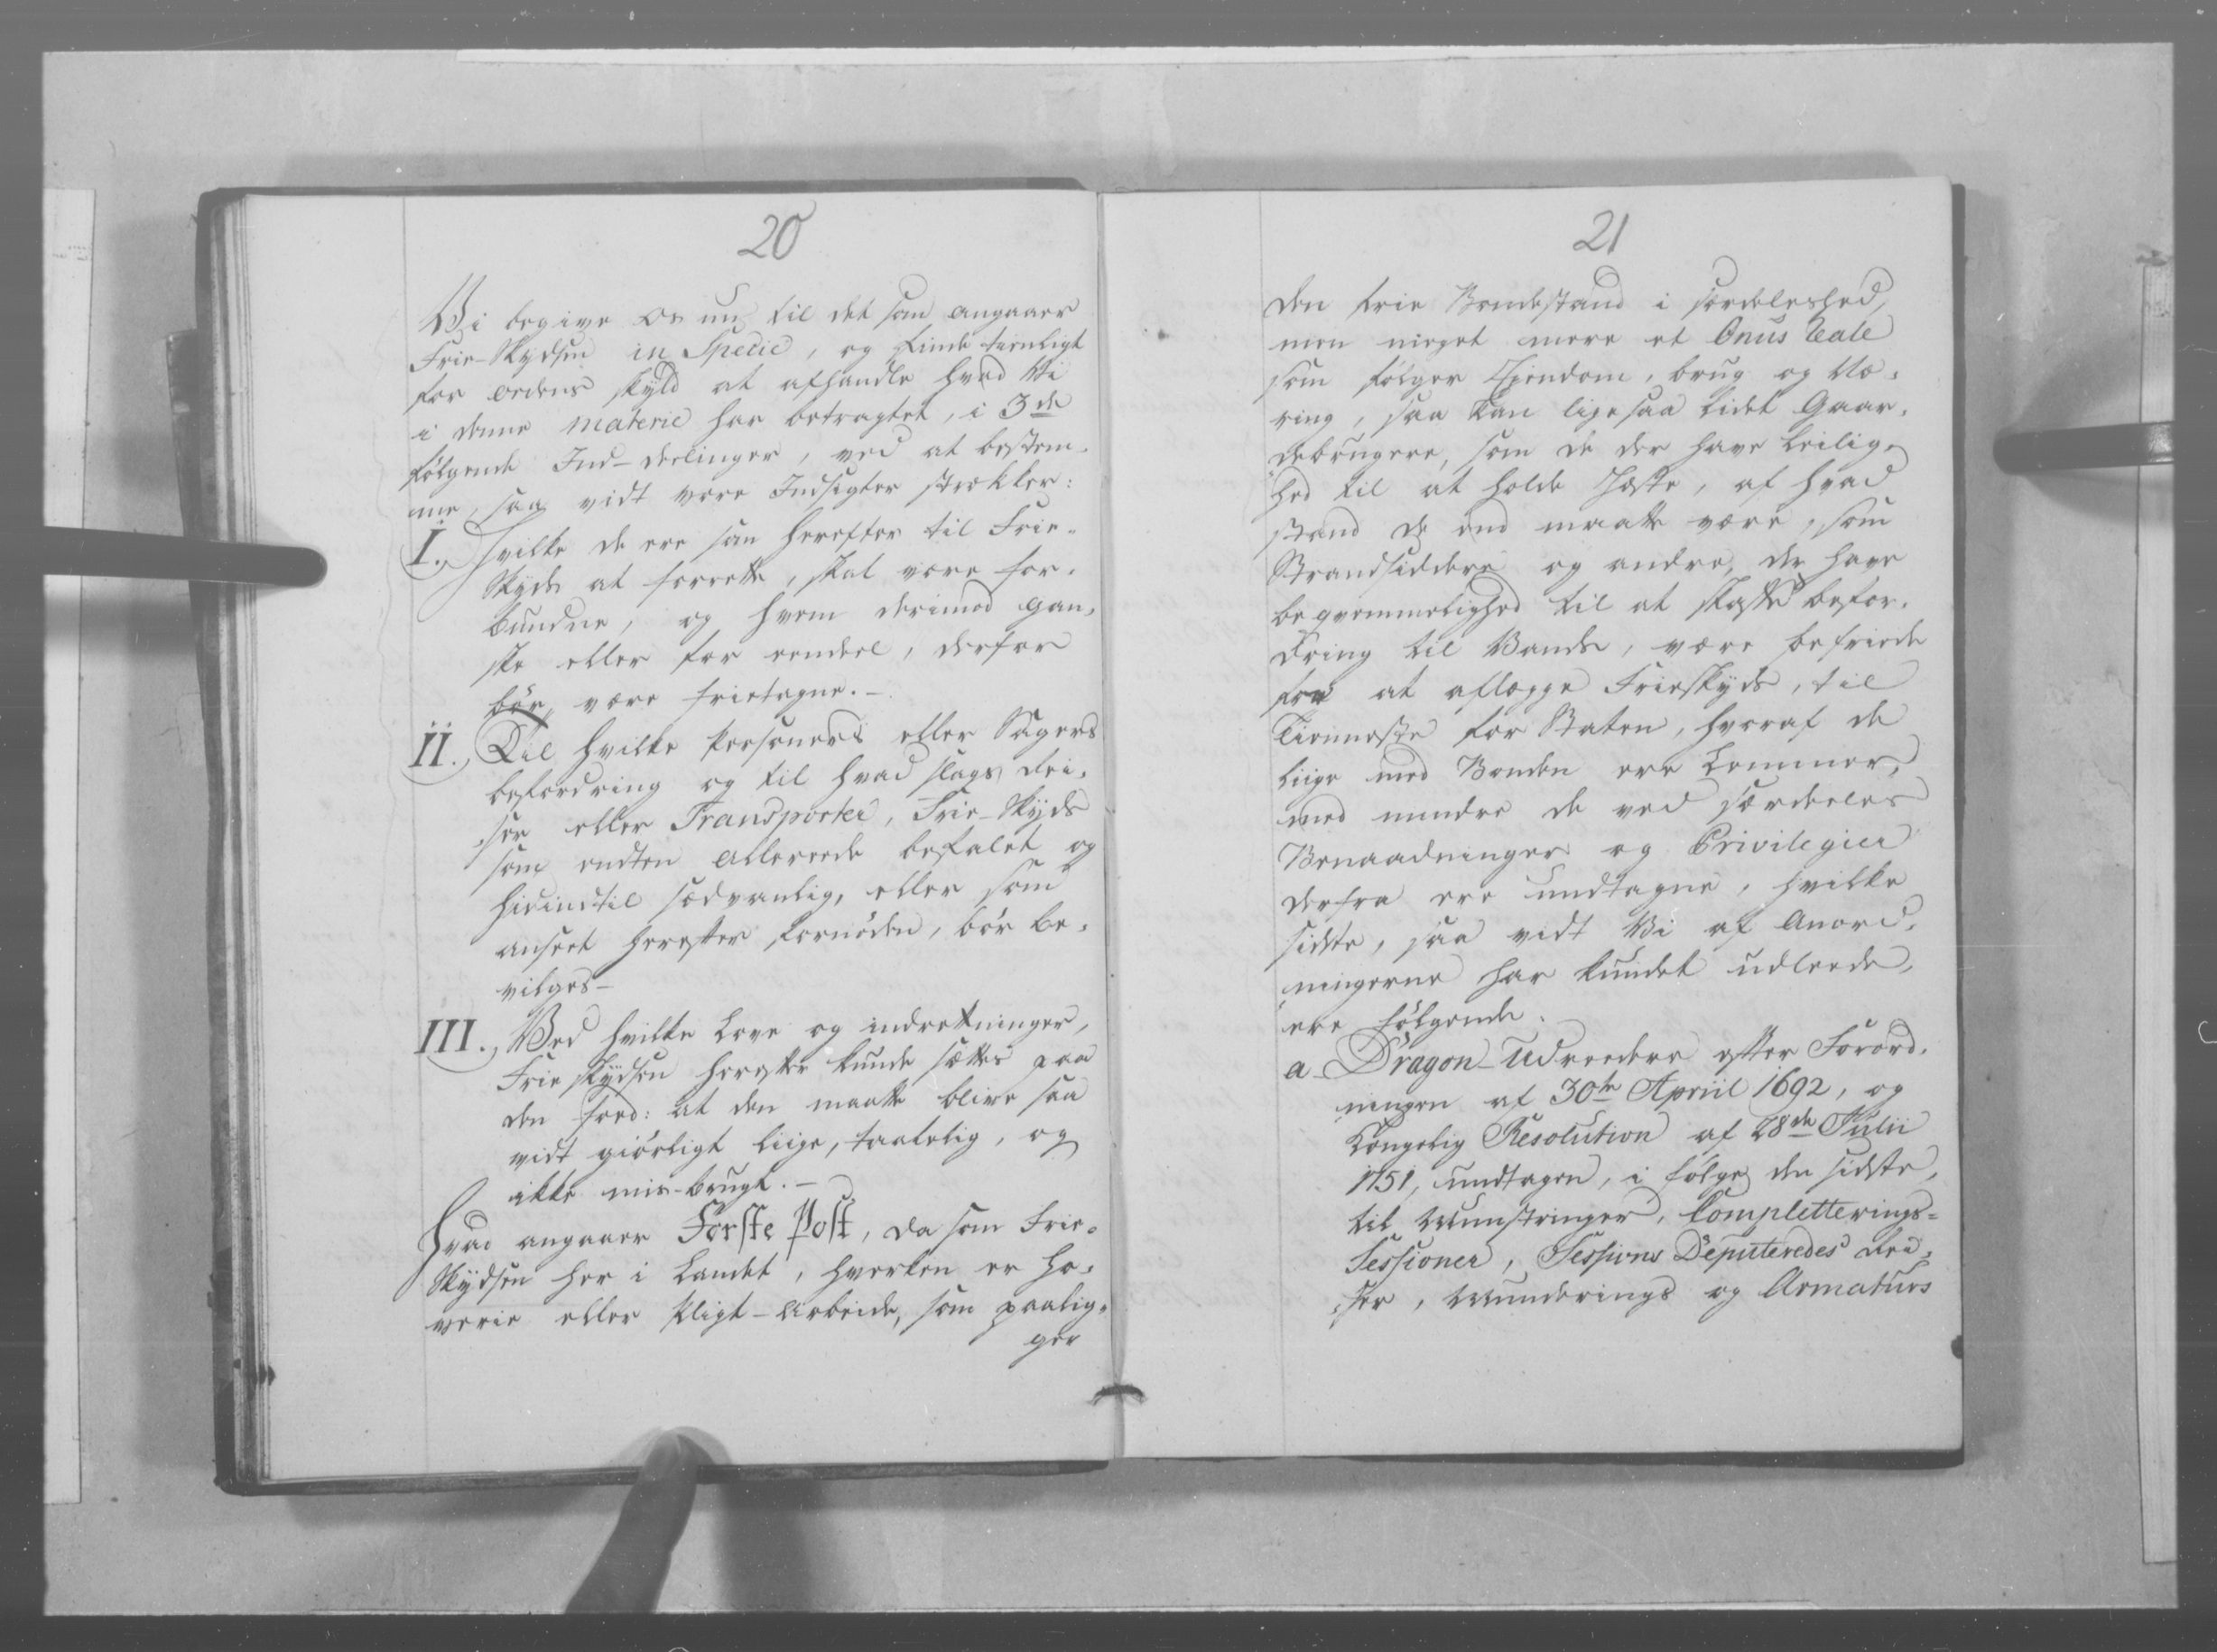 20
Vi begive os nu til det som angaaer
Frie-Skydsen in Specie, og finde tienligt
for ordens skyld at afhandle hvad Vi
i denne materie har betragtet, i 3de
følgende Ind-deelinger, ved at bestem-
me, saa vidt vore Indsigter strekker:
I. Hvilke de ere som herefter til Frie-
Skyds at forrette, skal være for-
bundne, og hvem derimod gan-
ske eller for eendeel, derfor
bør være frietagne.-
II. Til hvilke Personers eller Sagers
befordring og til hvad slags Rei-
ser eller Transporter, Frie-Skyds
som endten allereede befalet og
hidindtil sædvanlig, eller som
anseet herefter fornøden, bør be-
vilges-
III. Ved hvilke Love og indretninger,
Frie Skydsen herefter kunde sættes paa
den foed: at den maatte blive saa
vidt giørligt liige, taalelig, og
ikke mis-brugt.-
Hvad angaaer Første Post, da som Frie-
Skydsen her i Landet, hverken er Ho-
verie eller Pligt-Arbeide, som paalig-
ger
21
den frie Bondestand i særdeleshed,
men meget mere et Onus reale
som følger Eiendom, brug og Næ-
ring, saa kan lige saa lidet Gaar-
debrugere, som de der have Leilig-
hed til at holde Hæste, af hvad
stand de end maatte være, som
Strandsiddere og andre, der have
beqvemmelighed til at skaffe befor-
dring til Vands, være befriede
for at aflægge Frieskyds, til
Tienneste for Staten, hvoraf de
liige med Bonden ere Lemmer,
med mindre de ved særdeeles
Benaadninger og Privilegier
derfra ere undtagne, hvilke
sidste, saa vidt Vi af Anord-
ningerne har kundet udleede,
ere følgende.
a. Dragon-Udreedere efter Forord-
ningen af 30te Apriil 1692, og
Kongelig Resolution af 28de Julii
1751, undtagen, i følge den sidste,
til Munstringer, Completterings=
Sessioner, Sessions Deputeredes Rei-
ser, Munderings og Armaturs